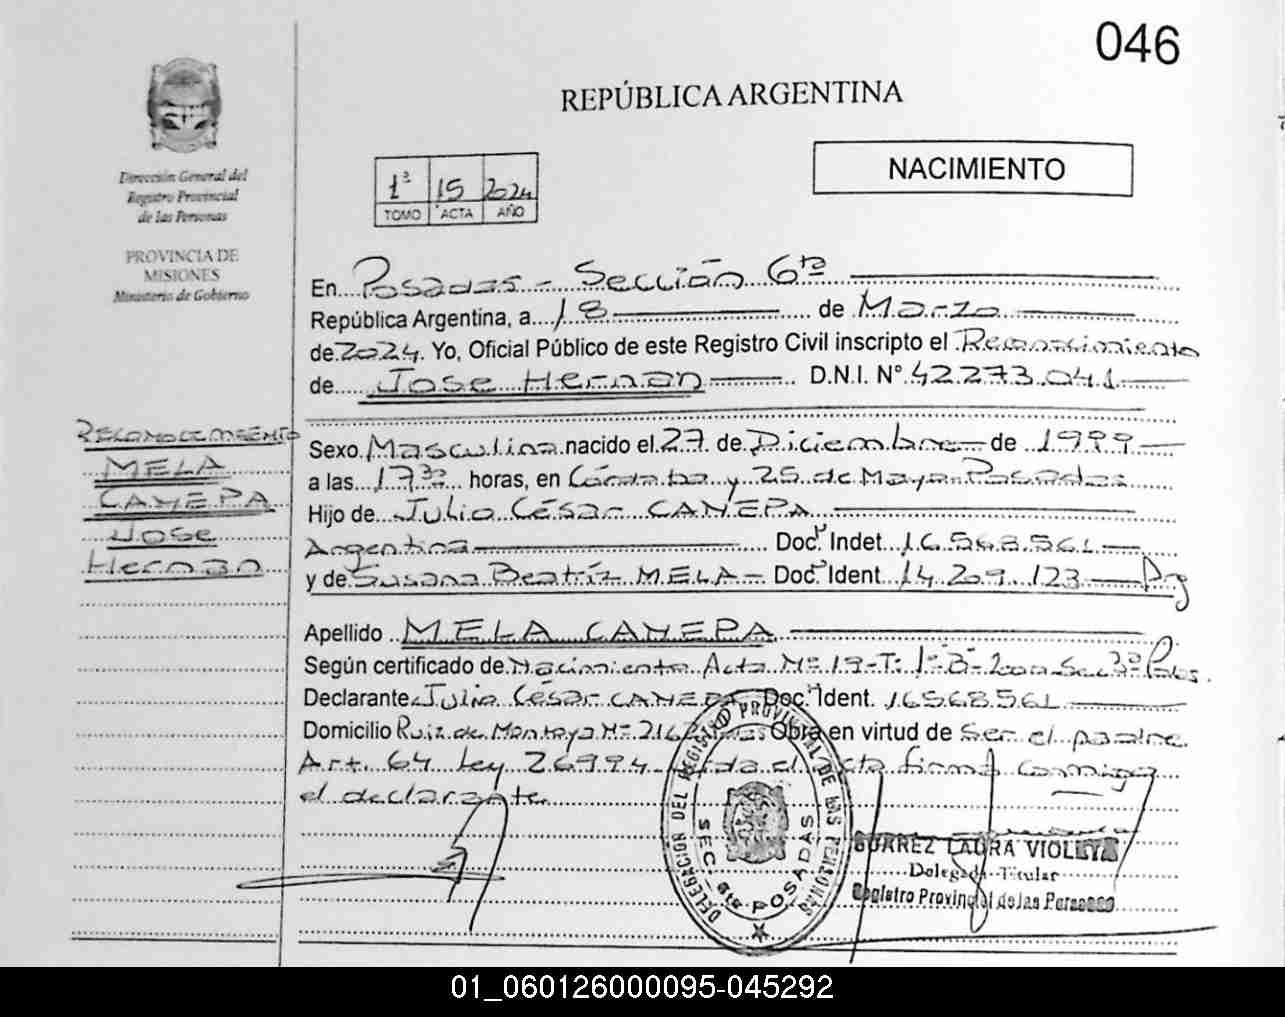 046
REPÚBLICA ARGENTINA
Dirección General del
Registro Provincial
de las Personas
PROVINCIA DE
MISIONES
Ministerio de Gobierno
1º 15 2024
TOMO ACTA AÑO
NACIMIENTO
En Posadas - Sección 6ta
República Argentina, a 18 de Marzo
de 2024. Yo, Oficial Público de este Registro Civil inscripto el Reconocimiento
de Jose Hernan D.N.I. Nº 42.273.041
RECONOCIMIENTO
MELA
CANEPA
Jose
Hernan
Sexo Masculino nacido el 27 de Diciembre de 1999
a las 17 30 horas, en Córdoba y 25 de Mayo Posadas
Hijo de Julio César CANEPA
Argentina Docº Indet 16.568.561
y de Susana Beatríz MELA - Docº Ident 14.209.123 Arg
Apellido MELA CANEPA
Según certificado de Nacimiento Acta Nº 19-T: 1º B-2000 Sec 3º Pdas.
Declarante Julio César CANEPA Docº Ident. 16568561
Domicilio Ruiz de Montoya Nº 216 Obra en virtud de Ser el padre
Art. 64 Ley 26994 el Acta firma conmigo
el declarante
DELEGACION DEL REGISTRO PROVINCIAL DE LAS PERSONAS
SECC. 6ta POSADAS
SUAREZ LAURA VIOLETA
Delegada Titular
Registro Provincial de las Personas
01_060126000095-045292